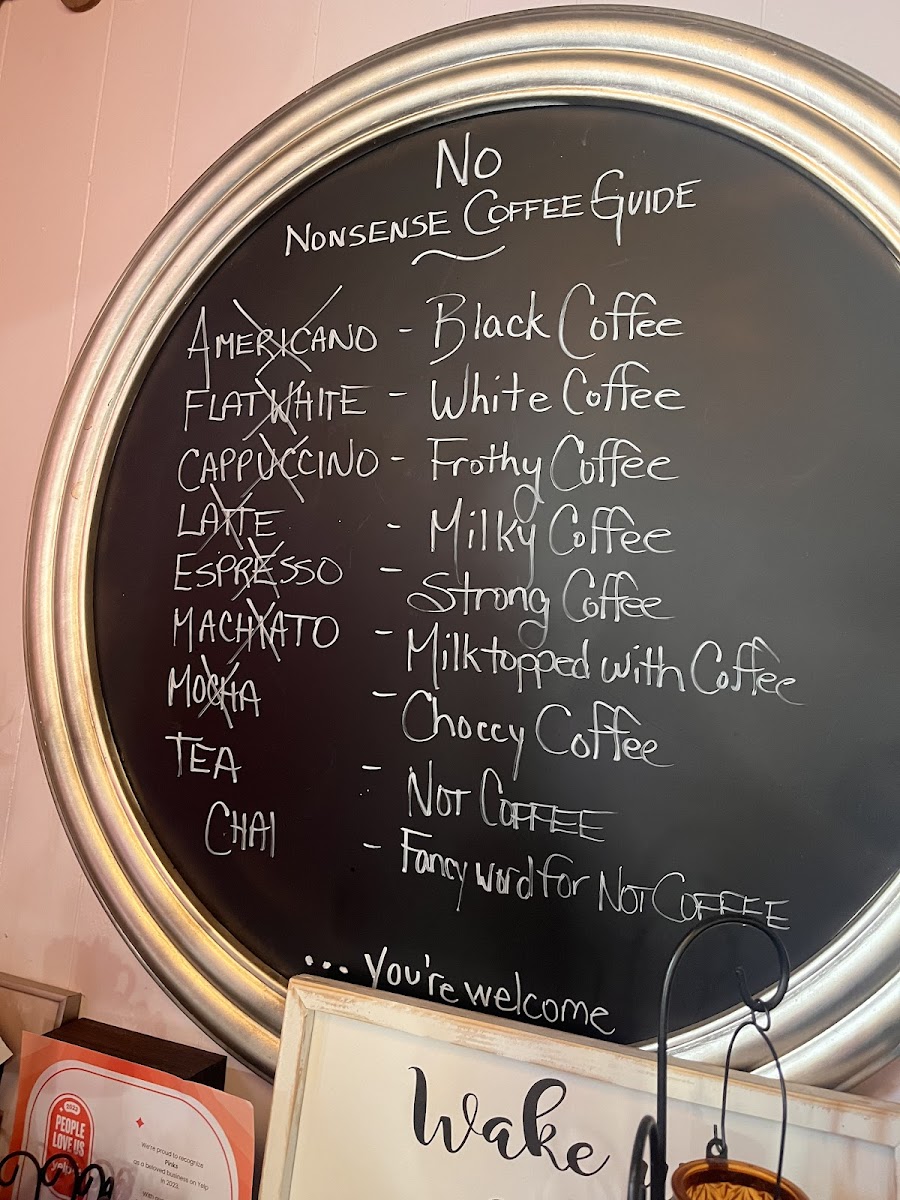 No
NONSENSE COFFEE GUIDE
AMERICANO - Black Coffee
FLAT WHITE - White Coffee
CAPPUCCINO - Frothy Coffee
LATTE - Milky Coffee
ESPRESSO - Strong Coffee
MACHIATO - Milk topped with Coffee
MOCHA - Choccy Coffee
TEA - NOT COFFEE
CHAI - Fancy word for NOT COFFEE
... you're welcome
Wake
2023
PEOPLE
LOVE US
yelp
We're proud to recognize
Pinks
as a beloved business on Yelp
in 2023.